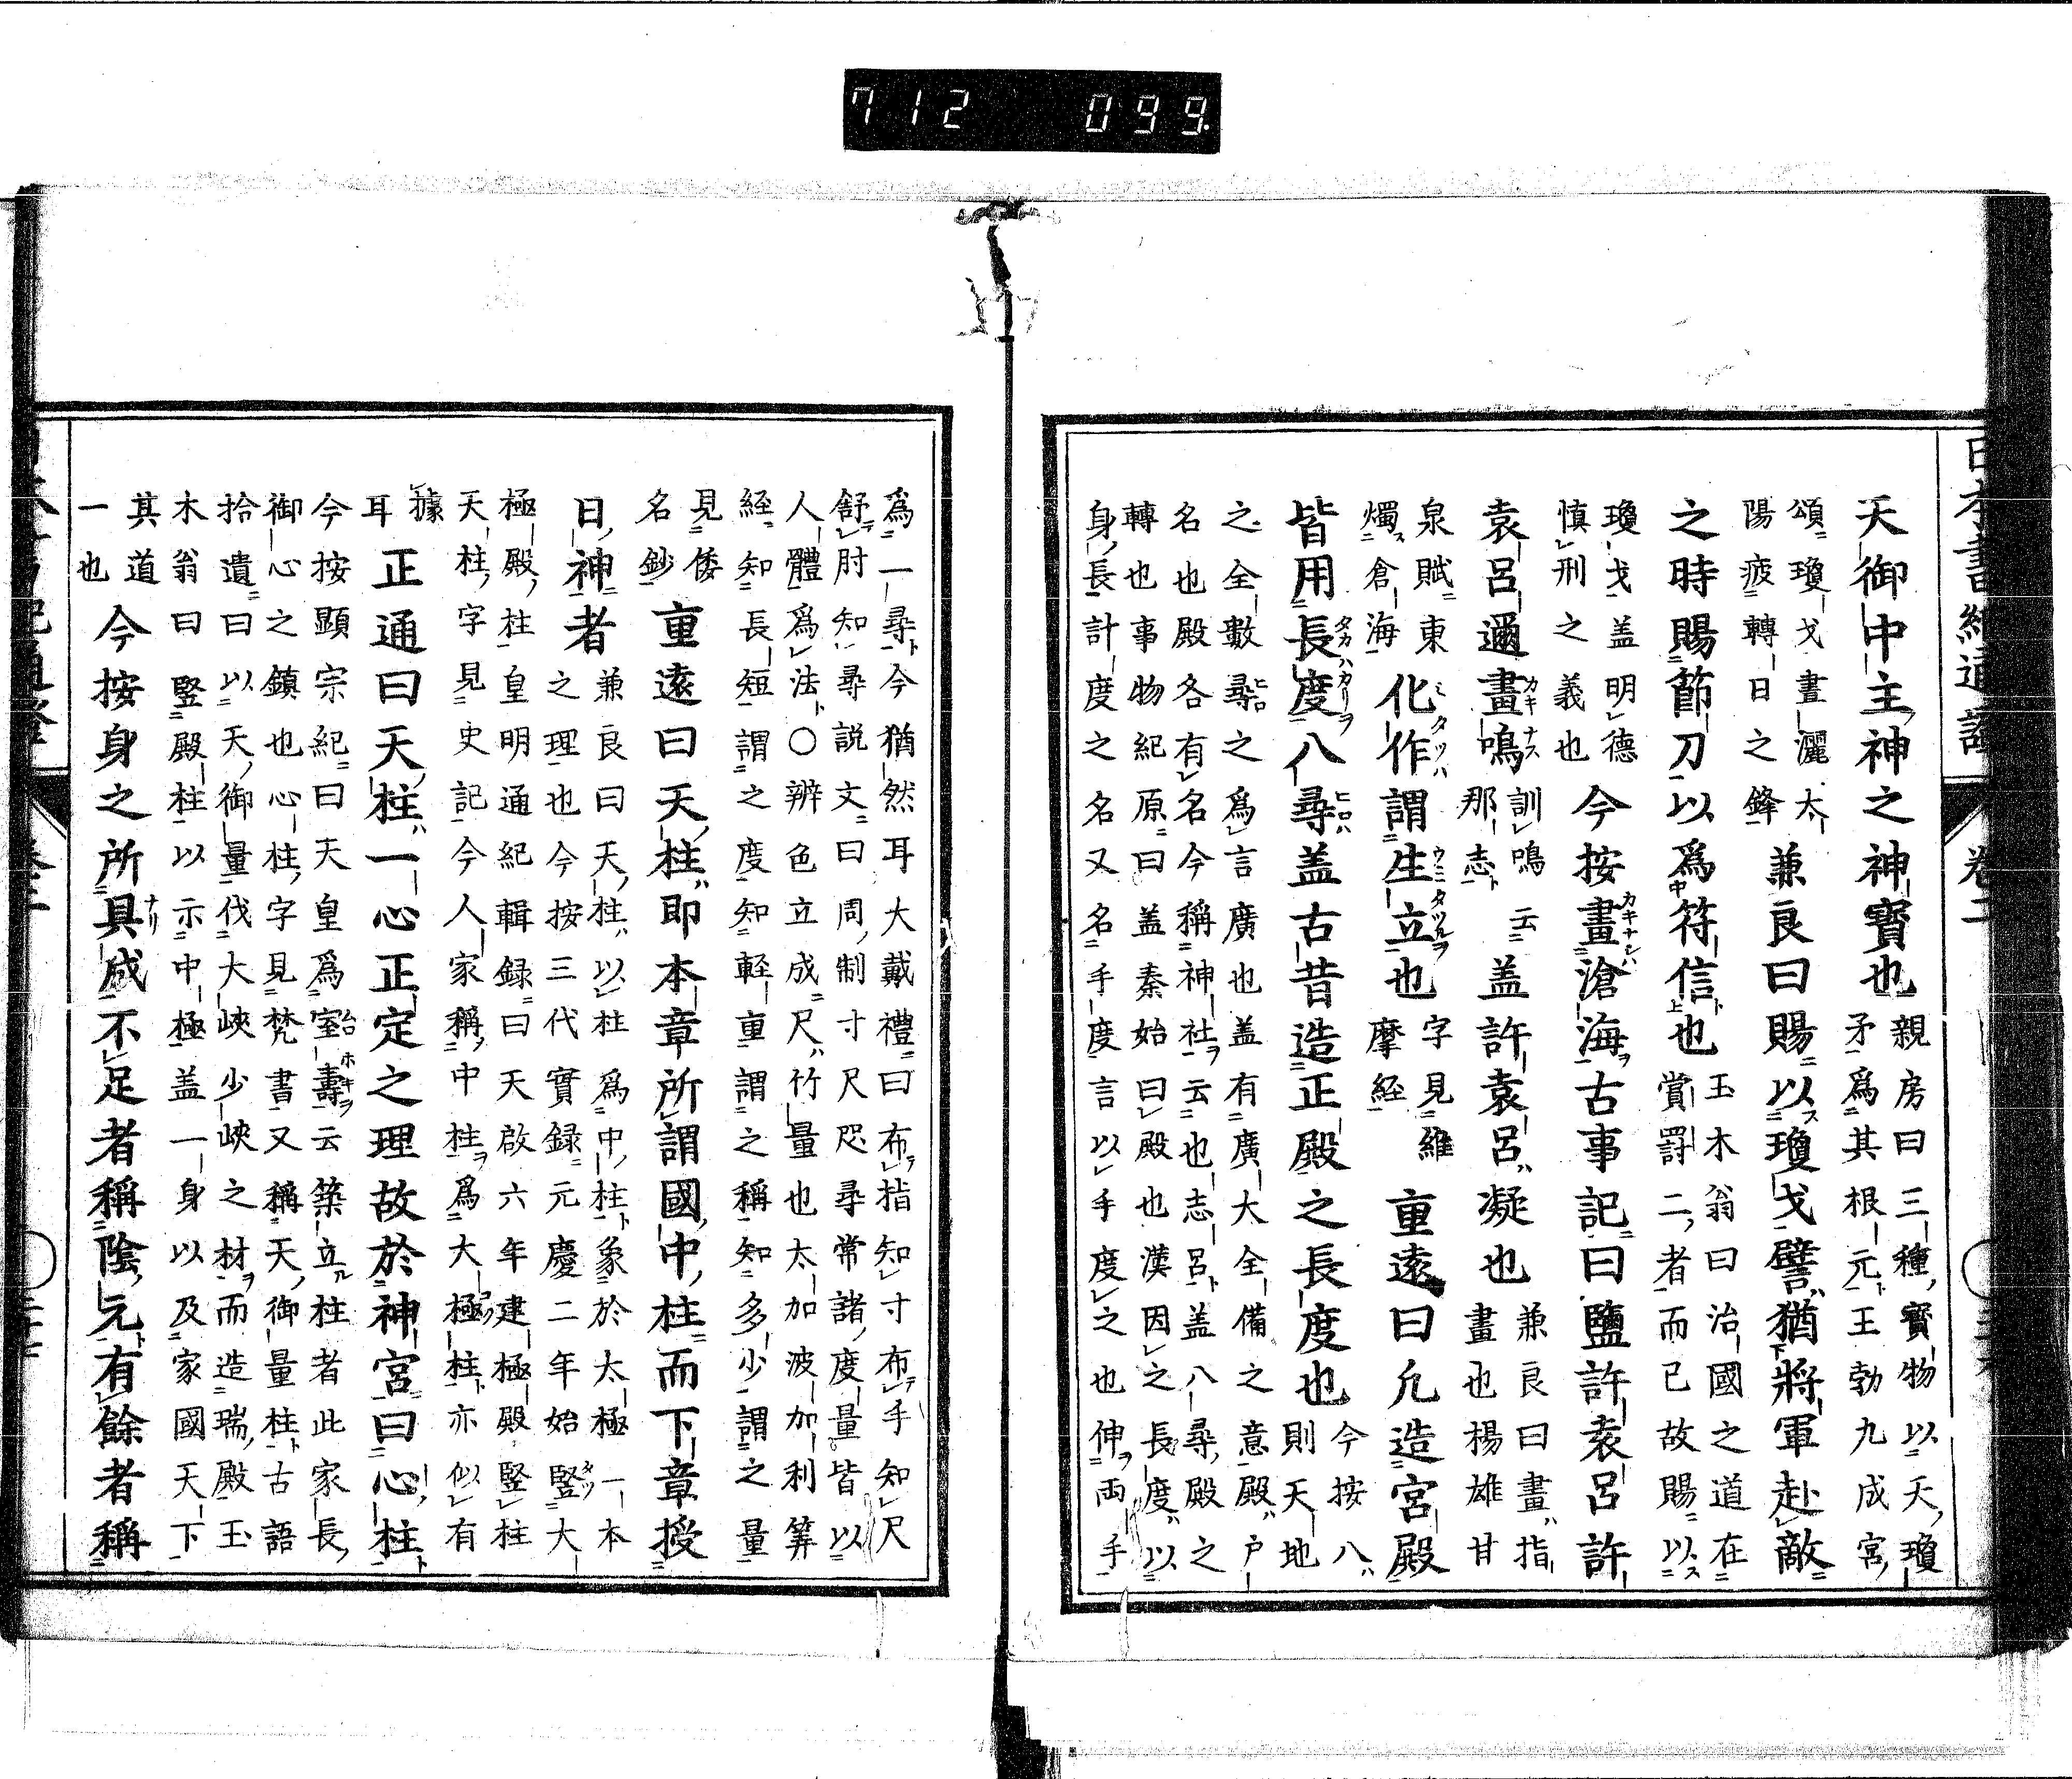 712 099.
天御中主神之神寶也
親房曰三種寶物以天瓊
矛爲其根元王勃九成宮
頌瓊戈晝灑太
陽疲轉日之鋒
兼良曰賜以瓊戈譬猶將軍赴敵
之時賜節刀以爲符信也
玉木翁曰治國之道在
賞罰二者而已故賜以
瓊戈盖明德
慎刑之義也
今按畫滄海古事記曰鹽許袁呂許
袁呂邇畫鳴
訓鳴云
那志
盖許袁呂凝也
兼良曰畫指
畫也楊雄甘
泉賦東
燭倉海
化作謂生立也
字見維
摩経
重遠曰凢造宮殿
皆用長度八尋盖古昔造正殿之長度也
今按八
則天地
之全數尋之爲言廣也盖有廣大全備之意殿戸
名也殿各有名今稱神社云也志呂盖八尋殿之
轉也事物紀原曰盖秦始曰殿也漢因之長度以
身長計度之名又名手度言以手度之也伸兩手
爲一尋今猶然耳大戴禮曰布指知寸布手知尺
舒肘知尋説文曰周制寸尺咫尋常諸度量皆以
人體爲法○辨色立成尺竹量也太加波加利筭
経知長短謂之度知軽重謂之稱知多少謂之量
見倭
名鈔
重遠曰天柱即本章所謂國中柱而下章授
日神者
兼良曰天柱以柱爲中柱象於太極一本
之理也今按三代實録元慶二年始竪大
極殿柱皇明通紀輯録曰天啟六年建極殿竪柱
天柱字見史記今人家稱中柱爲大極柱亦似有
據
耳
正通曰天柱一心正定之理故於神宮曰心柱
今按顯宗紀曰天皇爲室壽云築立柱者此家長
御心之鎮也心柱字見梵書又稱天御量柱古語
拾遺曰以天御量伐大峽少峽之材而造瑞殿玉
木翁曰竪殿柱以示中極盖一身以及家國天下
其道
一也
今按身之所具成不足者稱陰元有餘者稱